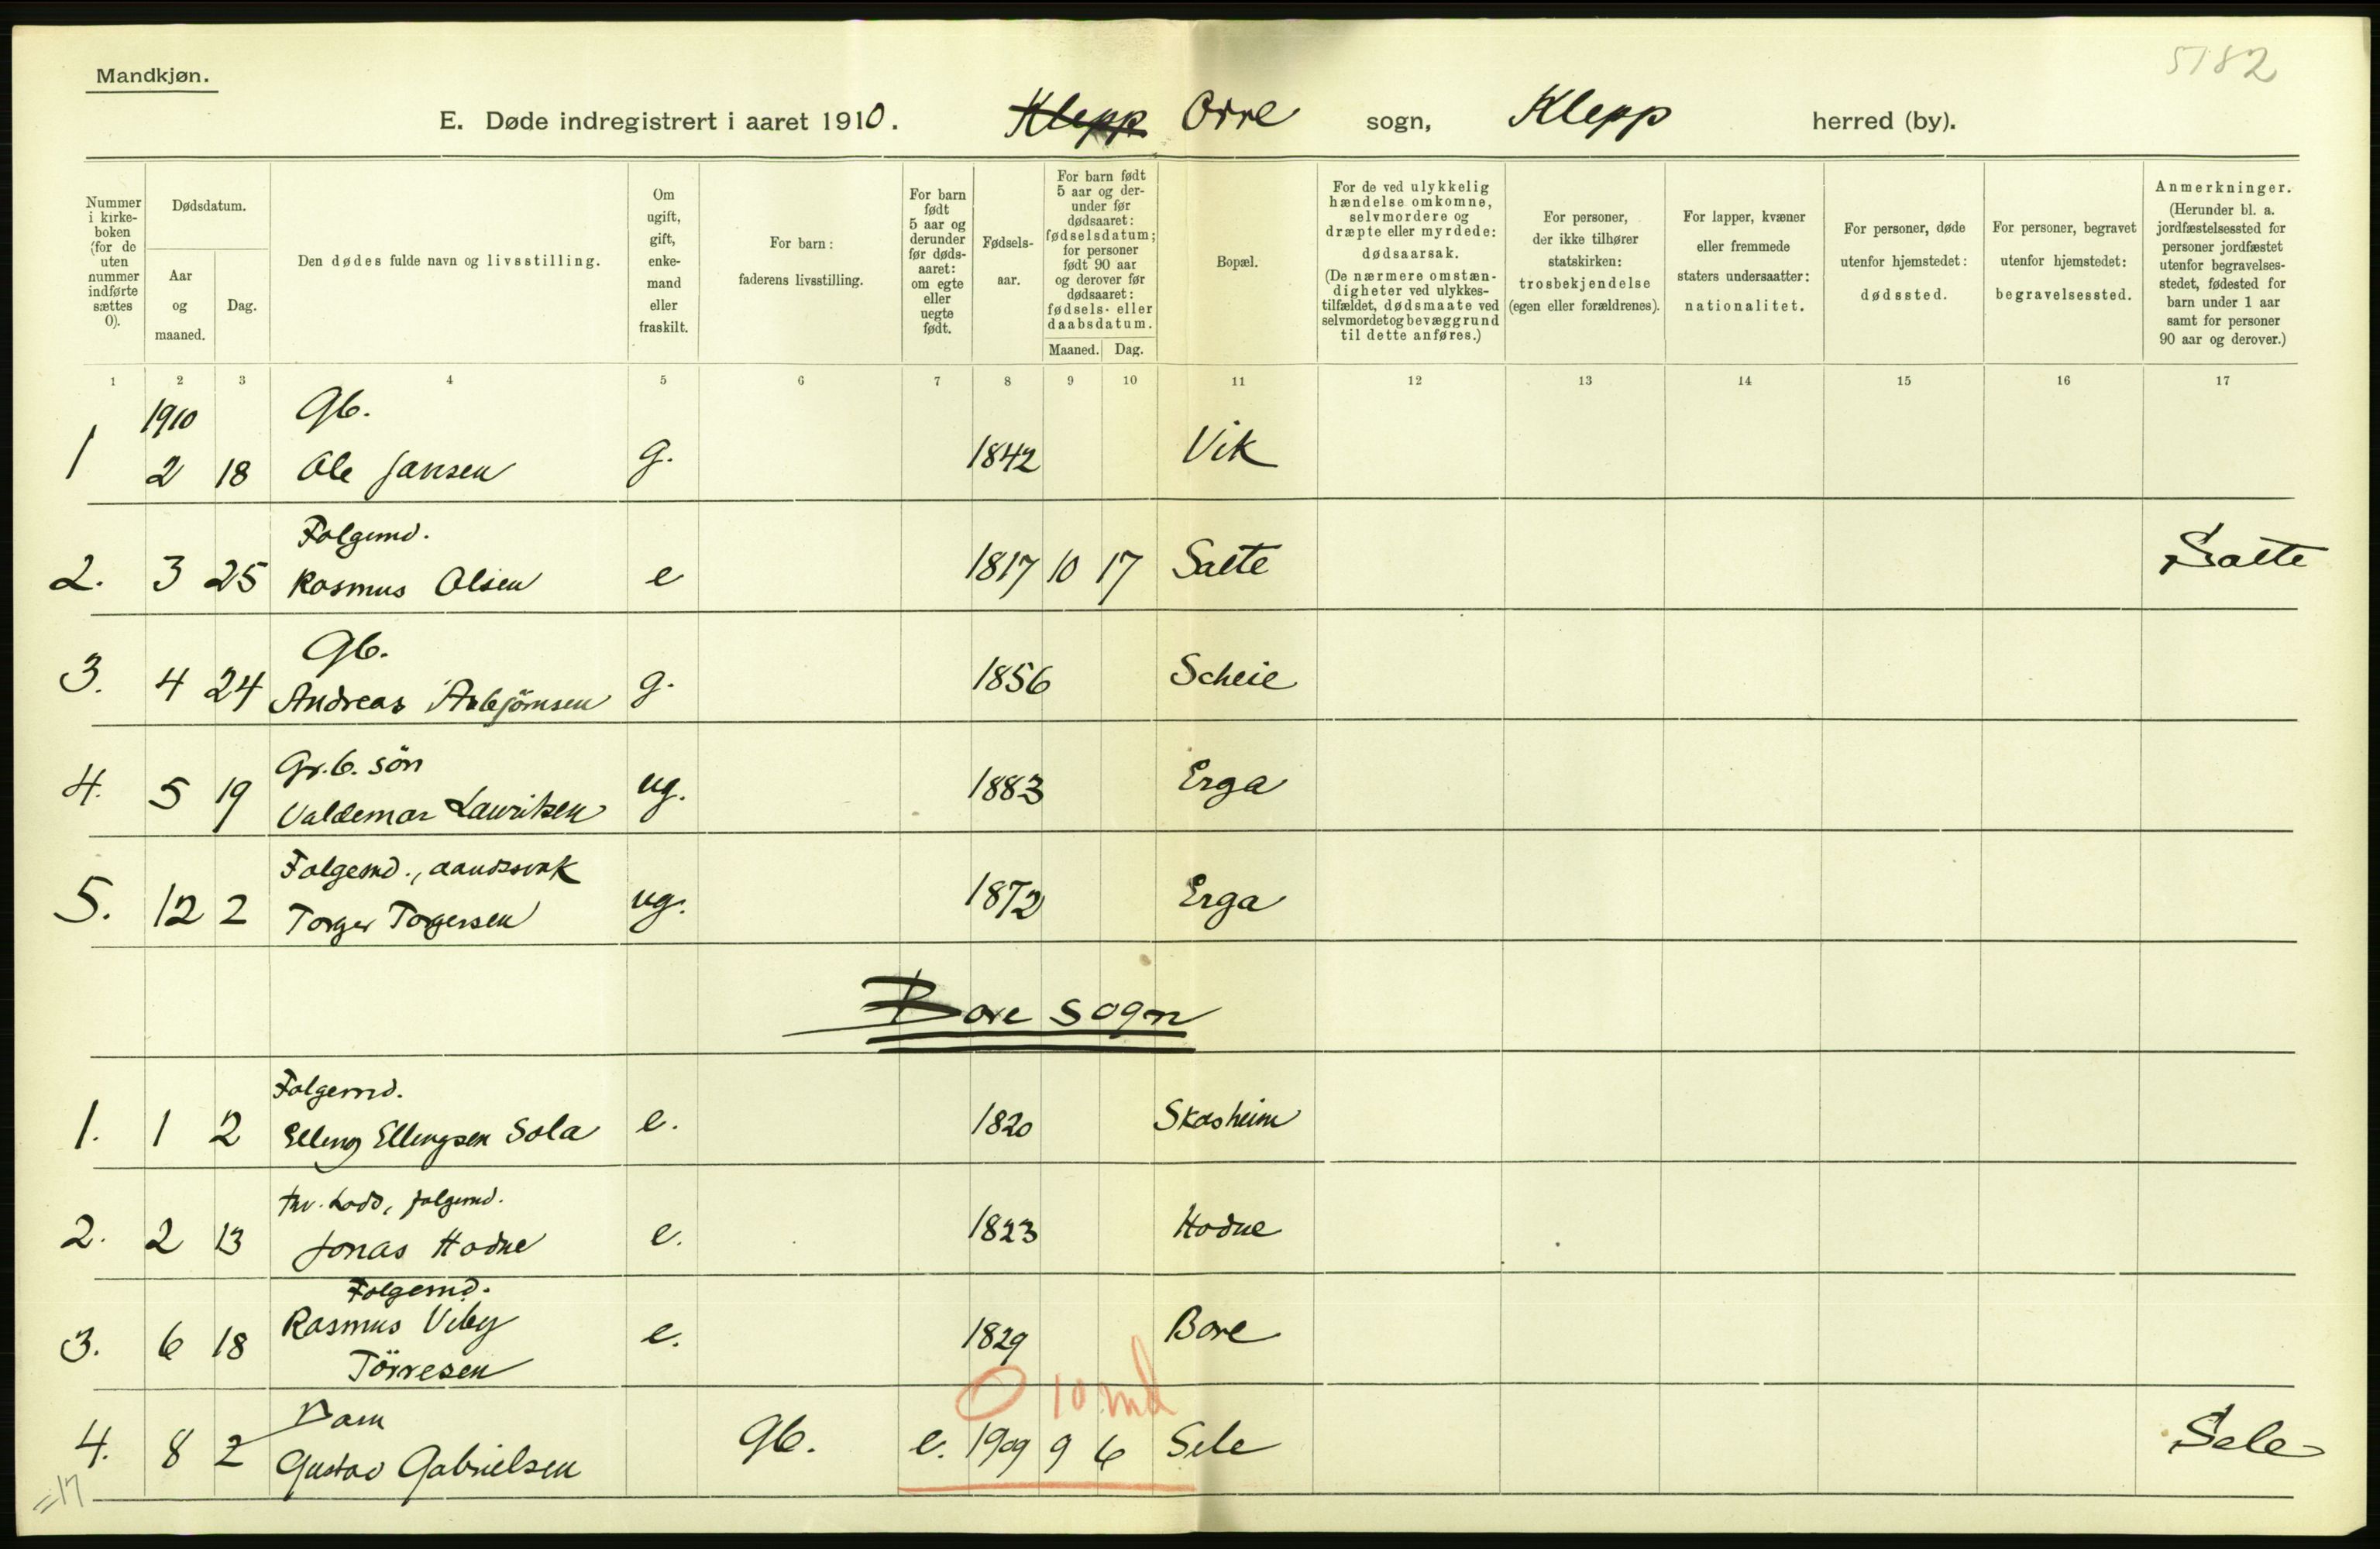 5182
Mandkjøn.
E. Døde indregistrert i aaret 1910. Klepp Orre sogn, Klepp herred (by).
Nummer i kirke-boken (for de uten nummer indførte sættes 0).
Dødsdatum.
Aar og maaned.
Dag.
Den dødes fulde navn og livsstilling.
Om ugift, gift, enke-mand eller fraskilt.
For barn: faderens livsstilling.
For barn født 5 aar og derunder før døds-aaret: om egte eller uegte født.
Fødsels-aar.
For barn født 5 aar og der-under før dødsaaret: fødselsdatum; for personer født 90 aar og derover før dødsaaret: fødsels- eller daabsdatum.
Maaned. Dag.
Bopæl.
For de ved ulykkelig hændelse omkomne, selvmordere og dræpte eller myrdede: dødsaarsak. (De nærmere omstæn-digheter ved ulykkes-tilfældet, dødsmaate ved selvmord et og bevæggrund til dette anføres.)
For personer, der ikke tilhører statskirken: trosbekjendelse (egen eller forældrenes).
For lapper, kvæner eller fremmede staters undersaatter: nationalitet.
For personer, døde utenfor hjemstedet: dødssted.
For personer, begravet utenfor hjemstedet: begravelsessted.
Anmerkninger. (Herunder bl. a. jordfæstelsessted for personer jordfæstet utenfor begravelses-stedet, fødested for barn under 1 aar samt for personer 90 aar og derover.)
1 2 3 4 5 6 7 8 9 10 11 12 13 14 15 16 17
1910 Gb.
1 2 18 Ole Jansen g. 1842 Vik
Folgemd.
2. 3 25 Rasmus Olsen e 1817 10 17 Salte Salte
Gb.
3. 4 24 Andreas Asbjörnsen g. 1856 Scheie
Gr.b. sön
4. 5 19 Valdemar Lauritsen ug. 1883 Erga
Folgemd., aandssvak
5. 12 2 Torger Torgersen ug. 1872 Erga
Bore sogn
Folgemd.
1. 1 2 Elling Ellingsen Sola e. 1820 Skasheim
fhv. Lods, folgemd.
2. 2 13 Jonas Hodne e. 1823 Hodne
Folgemd.
3. 6 18 Rasmus Viby e. 1829 Bore
Törresen
0 10 md
Barn
4. 8 2 Gustav Gabrielsen Gb. e. 1909 9 6 Sele Sele
=17